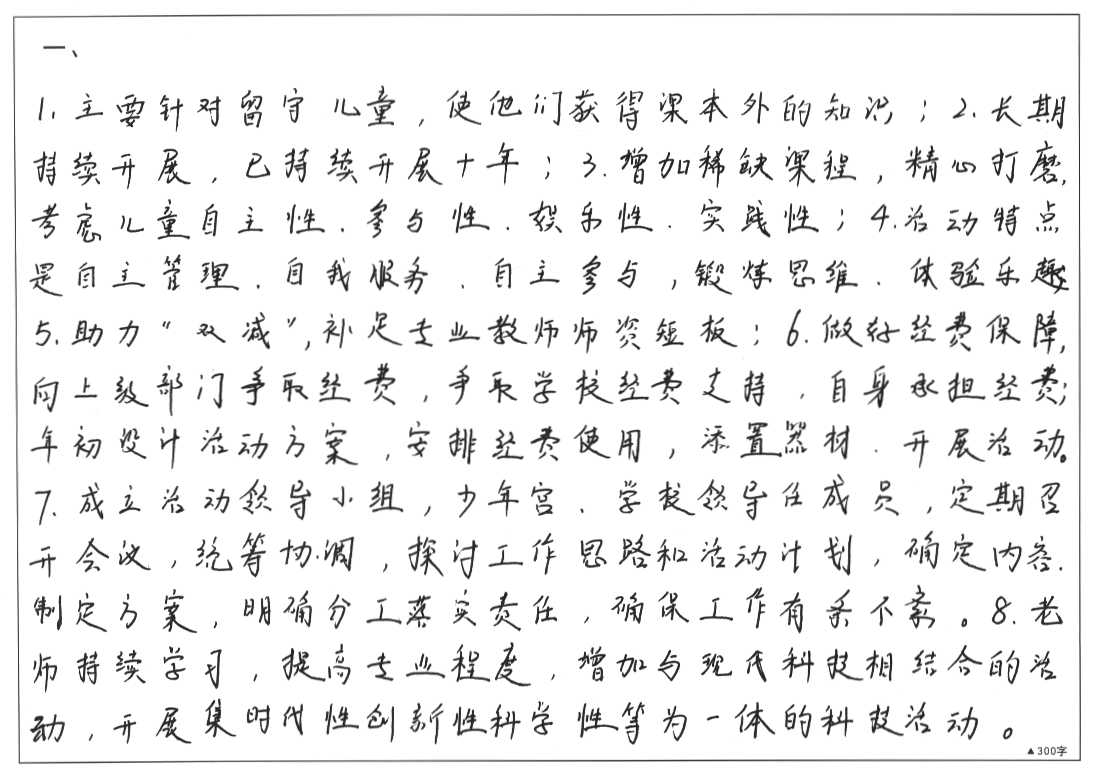 一、
1.主要针对留守儿童,使他们获得课本外的知识;2.长期
持续开展,已持续开展十年;3.增加稀缺课程,精心打磨,
考虑儿童自主性、参与性、娱乐性、实践性;4.活动特点
是自主管理、自我服务、自主参与,锻炼思维、体验乐趣;
5.助力“双减”,补足专业教师师资短板;6.做好经费保障,
向上级部门争取经费,争取学校经费支持,自身承担经费;
年初设计活动方案,安排经费使用,添置器材、开展活动。
7.成立活动领导小组,少年宫、学校领导任成员,定期召
开会议,统筹协调,探讨工作思路和活动计划,确定内容、
制定方案,明确分工落实责任,确保工作有条不紊。8.老
师持续学习,提高专业程度,增加与现代科技相结合的活
动,开展集时代性创新性科学性等为一体的科技活动。
▲300字